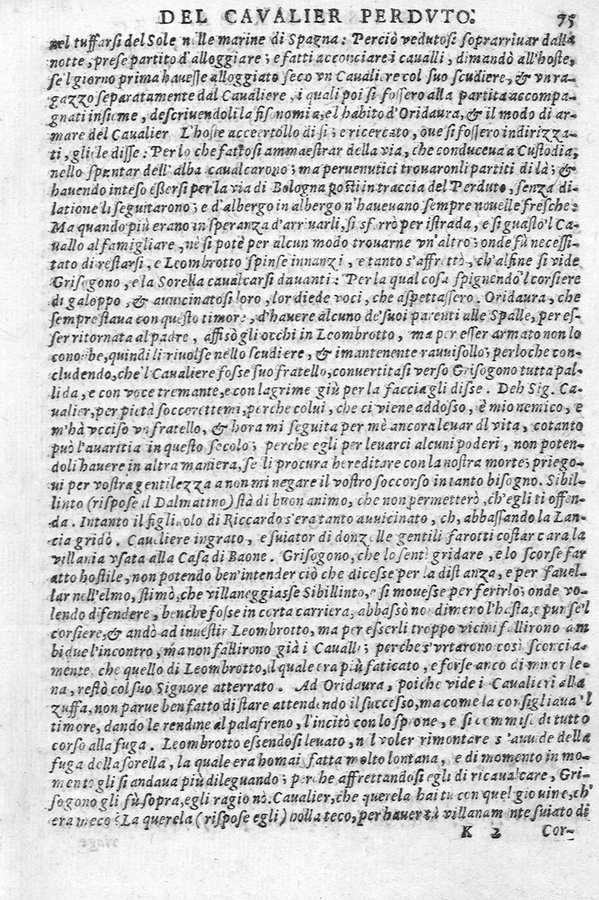 DEL CAVALIER PERDVTO. 75
nel tuffarsi del Sole nelle marine di Spagna: Perciò vedutosi soprarriuar dalla
notte, prese partito d'alloggiare; e fatti acconciare i caualli, dimandò all'hoste,
se'l giorno prima hauesse alloggiato seco vn Caualiere col suo scudiere, & vn ra-
gazzo separatamente dal Caualiere, i quali poi si fossero alla partita accompa-
gnati insieme, descriuendoli la fisonomia, el habito d'Oridaura, & il modo di ar-
mare del Caualier. L'hoste accertollo di sì; e ricercato, oue si fossero indirizza-
ti, gliele disse: Per lo che fattosi ammaestrar della via, che conduceua a Custodia,
nello spuntar dell'alba caualcarono; ma peruenutici trouaronli partiti di là; &
hauendo inteso essersi per la via di Bologna posti in traccia del Perduto, senza di-
latione li seguitarono; e d'albergo in albergo n'haueuano sempre nouelle fresche:
Ma quando più erano in speranza d'arriuarli, si sferrò per istrada, e si guastò'l Ca-
uallo al famigliare, nè si potè per alcun modo trouarne vn'altro; onde fù necessi-
tato di restarsi, e Leombrotto spinse innanzi, e tanto s'affrettò, ch'alfine si vide
Grisogono, e la Sorella caualcarsi dauanti: Per la qual cosa spignendo'l corsiere
di galoppo, & auuicinatosi loro, lor diede voci, che aspettassero. Oridaura, che
sempre staua con questo timore, d'hauere alcuno de'suoi parenti alle Spalle, per es-
ser ritornata al padre, affisò gli occhi in Leombrotto, ma per esser armato non lo
conobbe, quindi li riuolse nello scudiere, & imantenente rauuisollo; perloche con-
cludendo, che'l Caualiere fosse suo fratello, conuertitasi verso Grisogono tutta pal-
lida, e con voce tremante, e con lagrime giù per la faccia gli disse. Deh Sig. Ca-
ualier, per pietà soccorettemi, perche colui, che ci viene addosso, è mio nemico, e
m'hà vcciso vn fratello, & hora mi seguita per mè ancora leuar di vita, cotanto
può l'auaritia in questo secolo; perche egli per leuarci alcuni poderi, non poten-
doli hauere in altra maniera, se li procura hereditare con la nostra morte; priego-
ui per vostra gentilezza a non mi negare il vostro soccorso in tanto bisogno. Sibil-
linto (rispose il Dalmatino) stà di buon animo, che non permetterò, ch'egli ti offen-
da. Intanto il figliuolo di Riccardo s'era tanto auuicinato, ch, abbassando la Lan-
cia gridò. Caualiere ingrato, e suiator di donzelle gentili farotti costar cara la
villania vsata alla Casa di Baone. Grisogono, che lo sentì gridare, e lo scorse far
atto hostile, non potendo ben'intender ciò che dicesse per la distanza, e per fauel-
lar nell'elmo, stimò, che villaneggiasse Sibillinto, e si mouesse per ferirlo; onde vo-
lendo difendere, benche fosse in corta carriera, abbassò nodimero l'hasta, e punse'l
corsiere, & andò ad inuestir Leombrotto, ma per esserli troppo vicini fallirono am
bidue l'incontro, ma non fallirono già i Caualli; perche s'vrtarono così sconcia-
mente, che quello di Leombrotto, il quale era più faticato, e forse anco di minor le-
na, restò col suo Signore atterrato. Ad Oridaura, poiche vide i Caualieri alla
zuffa, non parue ben fatto di stare attendendo il successo, ma come la consigliaua'l
timore, dando le rendine al palafreno, l'incitò con lo sprone, e si commise di tutto
corso alla fuga. Leombrotto essendosi leuato, nel voler rimontare s'auuide della
fuga della sorella, la quale era homai fatta molto lontana, e di momento in mo-
mento gli si andaua più dileguando; perche affrettandosi egli di ricaualcare, Gri-
sogono gli fù sopra, egli ragionò. Caualier, che querela hai tu con quel giouine, ch'
era meco? La querela (rispose egli) holla teco, per hauer tù villanamente suiato di
K 2 Cor-